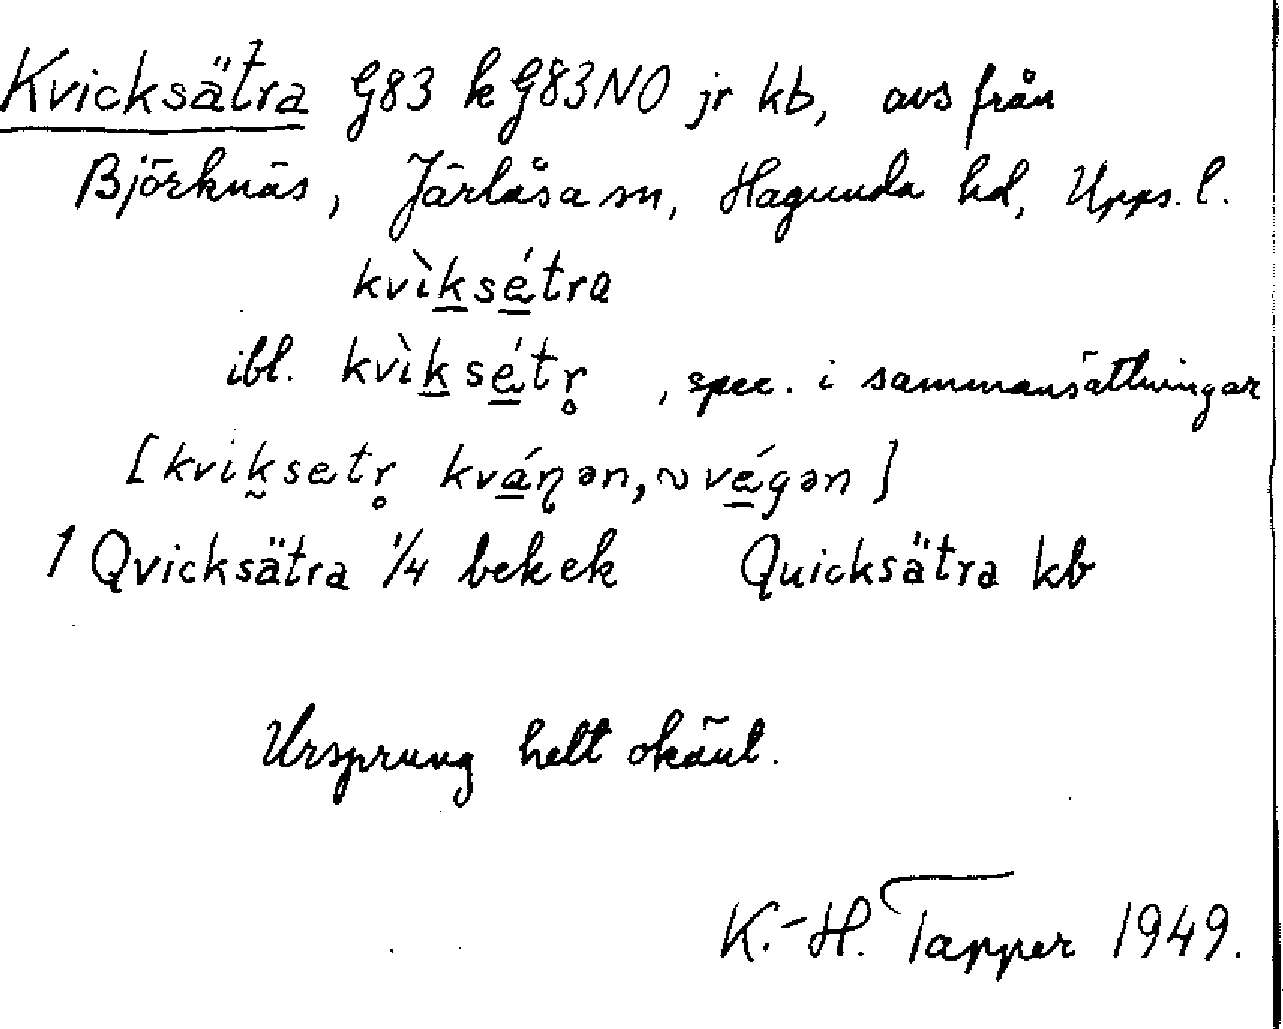 Kvicksätra G83 k G83NO jr kb, avs från
Björknäs, Järlåsa sn, Hagunda hd, Upps. l.
kvìksǽtra
ibl. kvìksǽtr̥ , spec. i sammansättningar
[kviksætr̥ kváŋən, ~ vǽgən]
1 Qvicksätra 1/4 bek ek Quicksätra kb
Ursprung helt okänt.
K.-H. Tapper 1949.